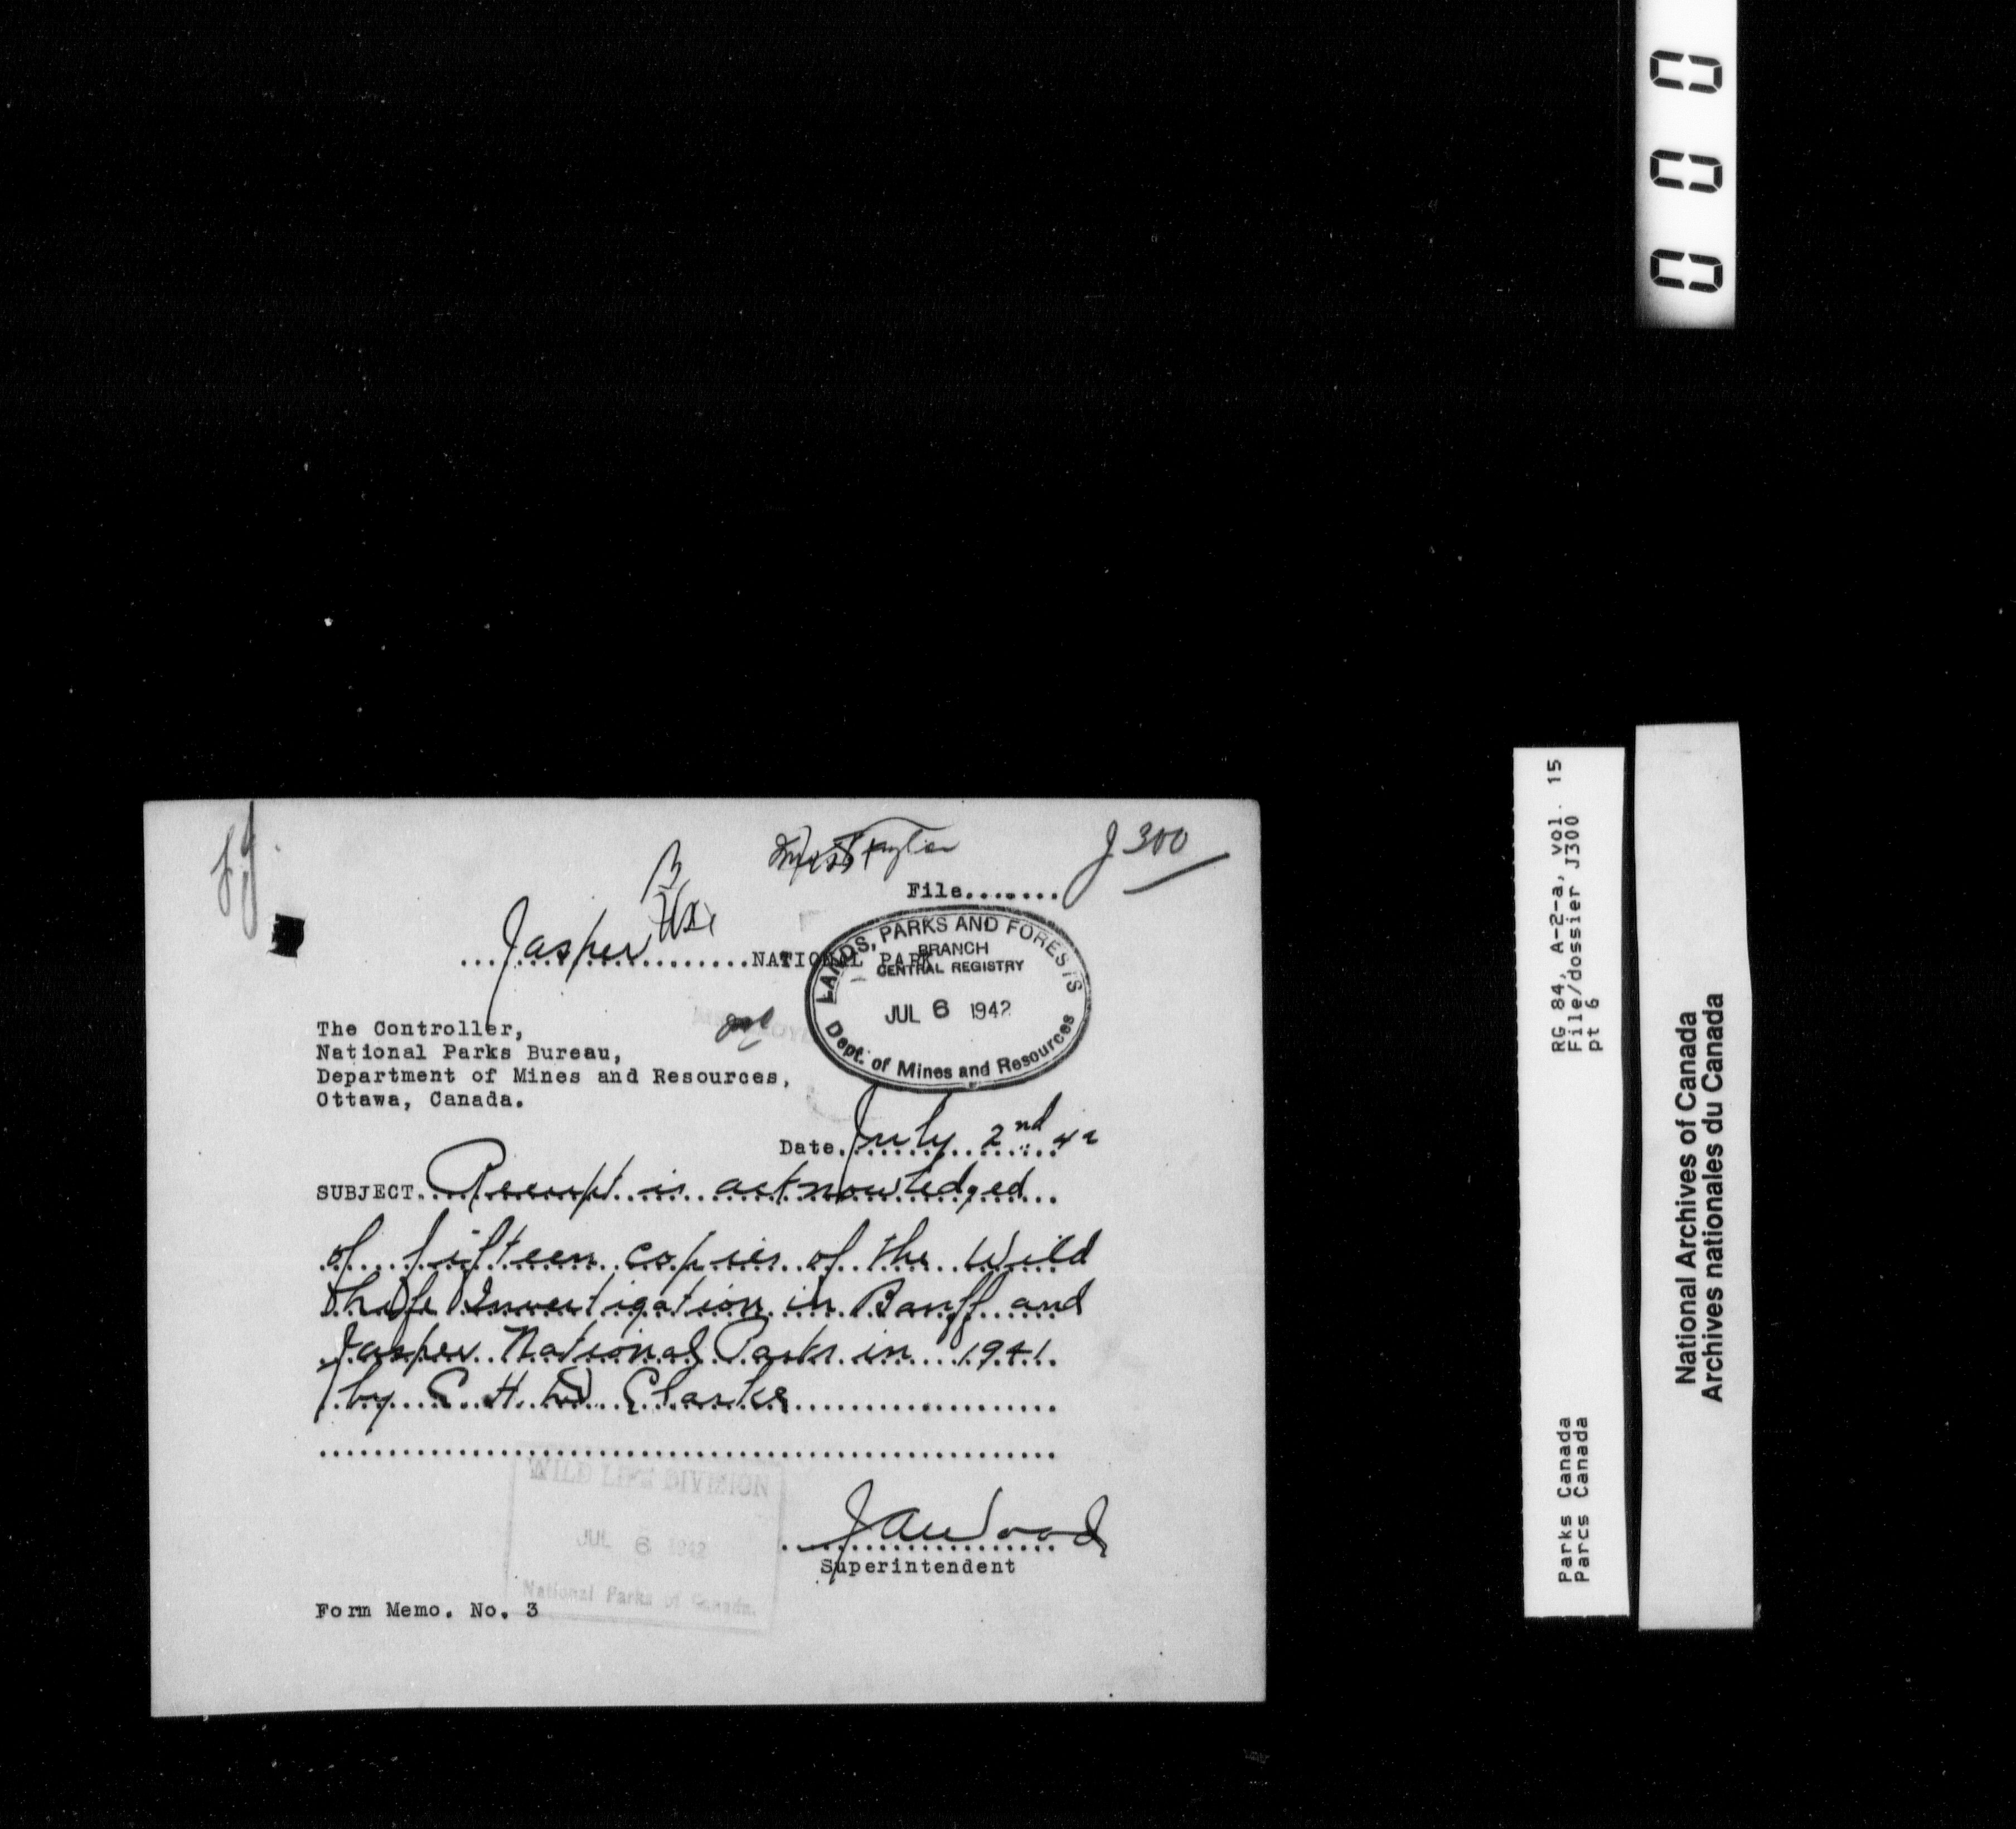 000
J 300
Miss Taylor
File........
Jasper
...NATIONAL PARK
LANDS, PARKS AND FORESTS
BRANCH
CENTRAL REGISTRY
JUL 6 1942
Dept. of Mines and Resources
The Controller,
National Parks Bureau,
Department of Mines and Resources,
Ottawa, Canada.
Date. July 2nd 42
SUBJECT. Receipt is acknowledged
of fifteen copies of the Wild
Life Investigation in Banff and
Jasper National Parks in 1941.
by C. H. D. Clarke
WILD LIFE DIVISION
JUL 6 1942
National Parks of Canada.
J A Wood
Superintendent
Form Memo. No. 3
RG 84, A-2-a, vol. 15
File/dossier J300
pt 6
Parks Canada
Parcs Canada
National Archives of Canada
Archives nationales du Canada